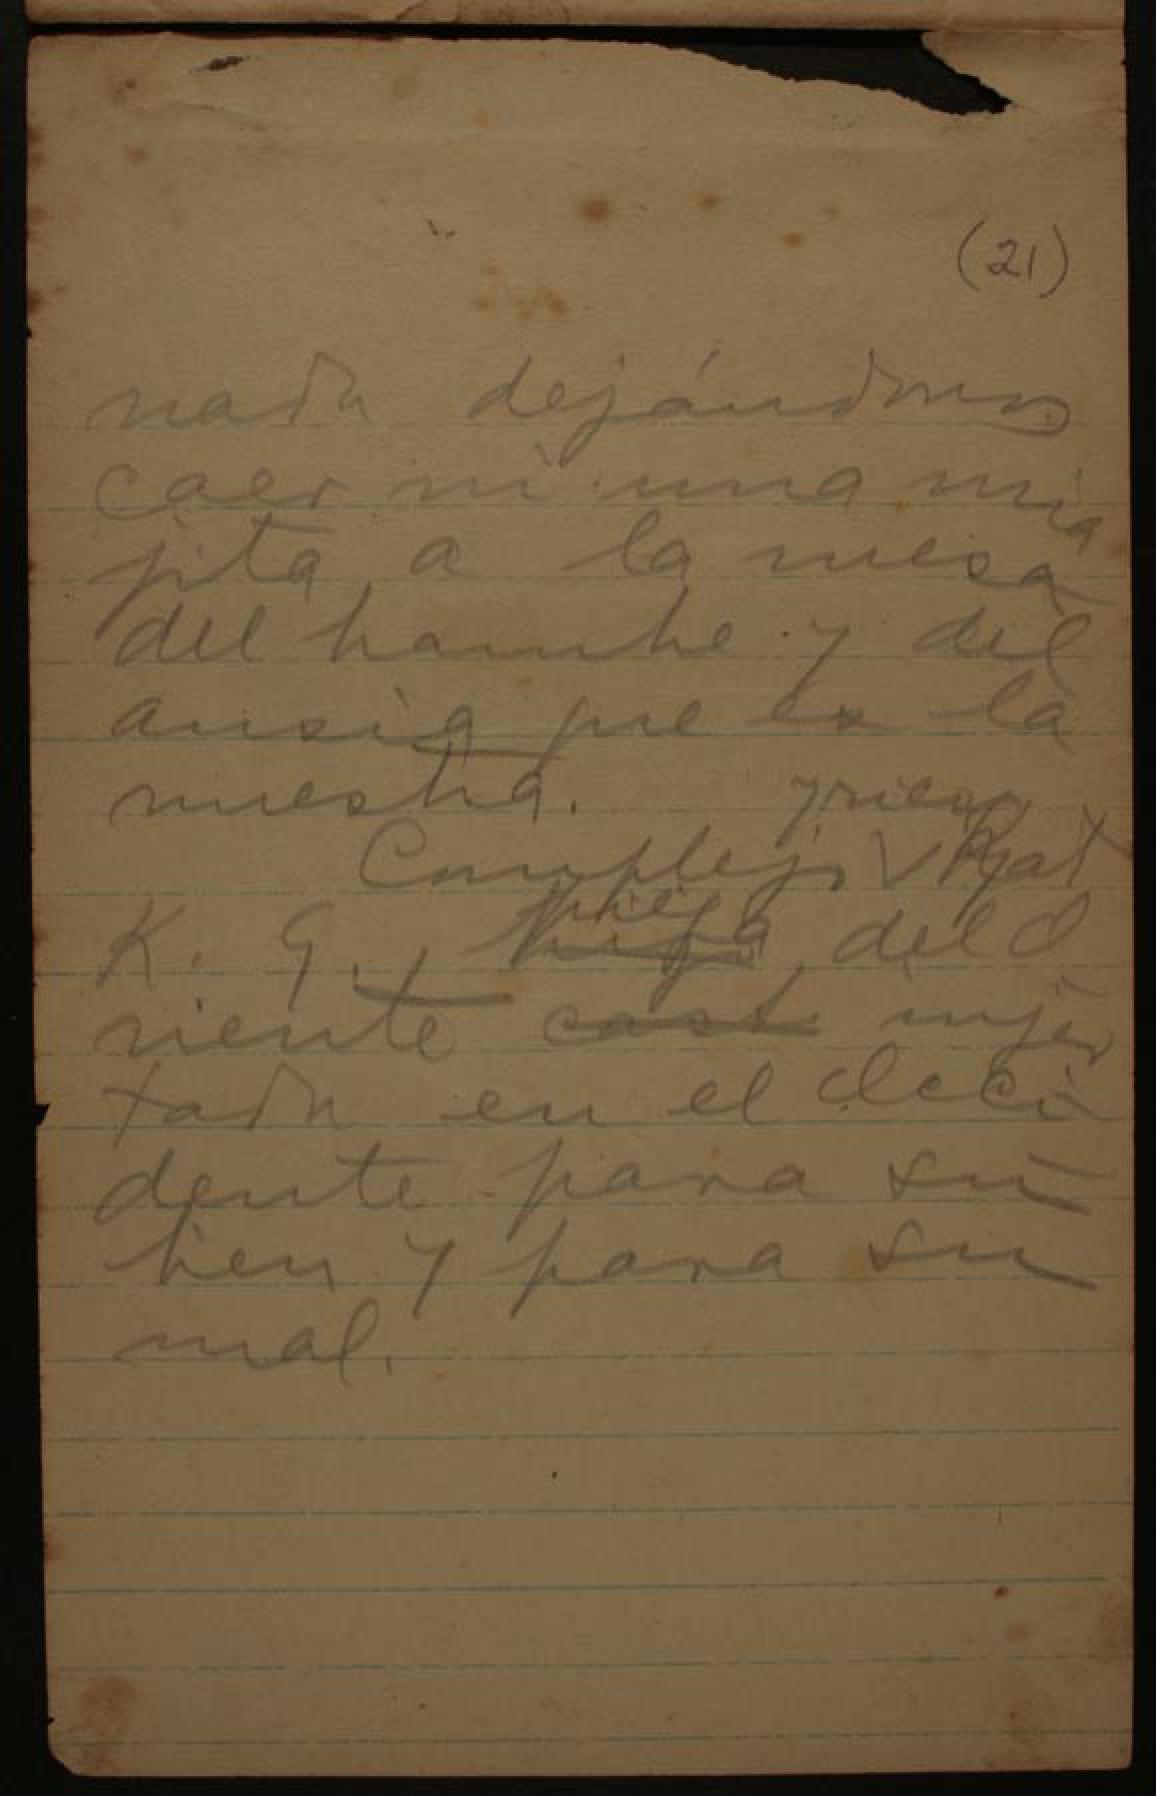 (21)
nada dejándonos
caer ni una mia
jita a la mesa
del hambre y del
ansia que es la
nuestra.
y rico
Complejo V Rat
K. G., hijo del O
riente cast injer
tado en el Occi
dente para su
bien y para su
mal.